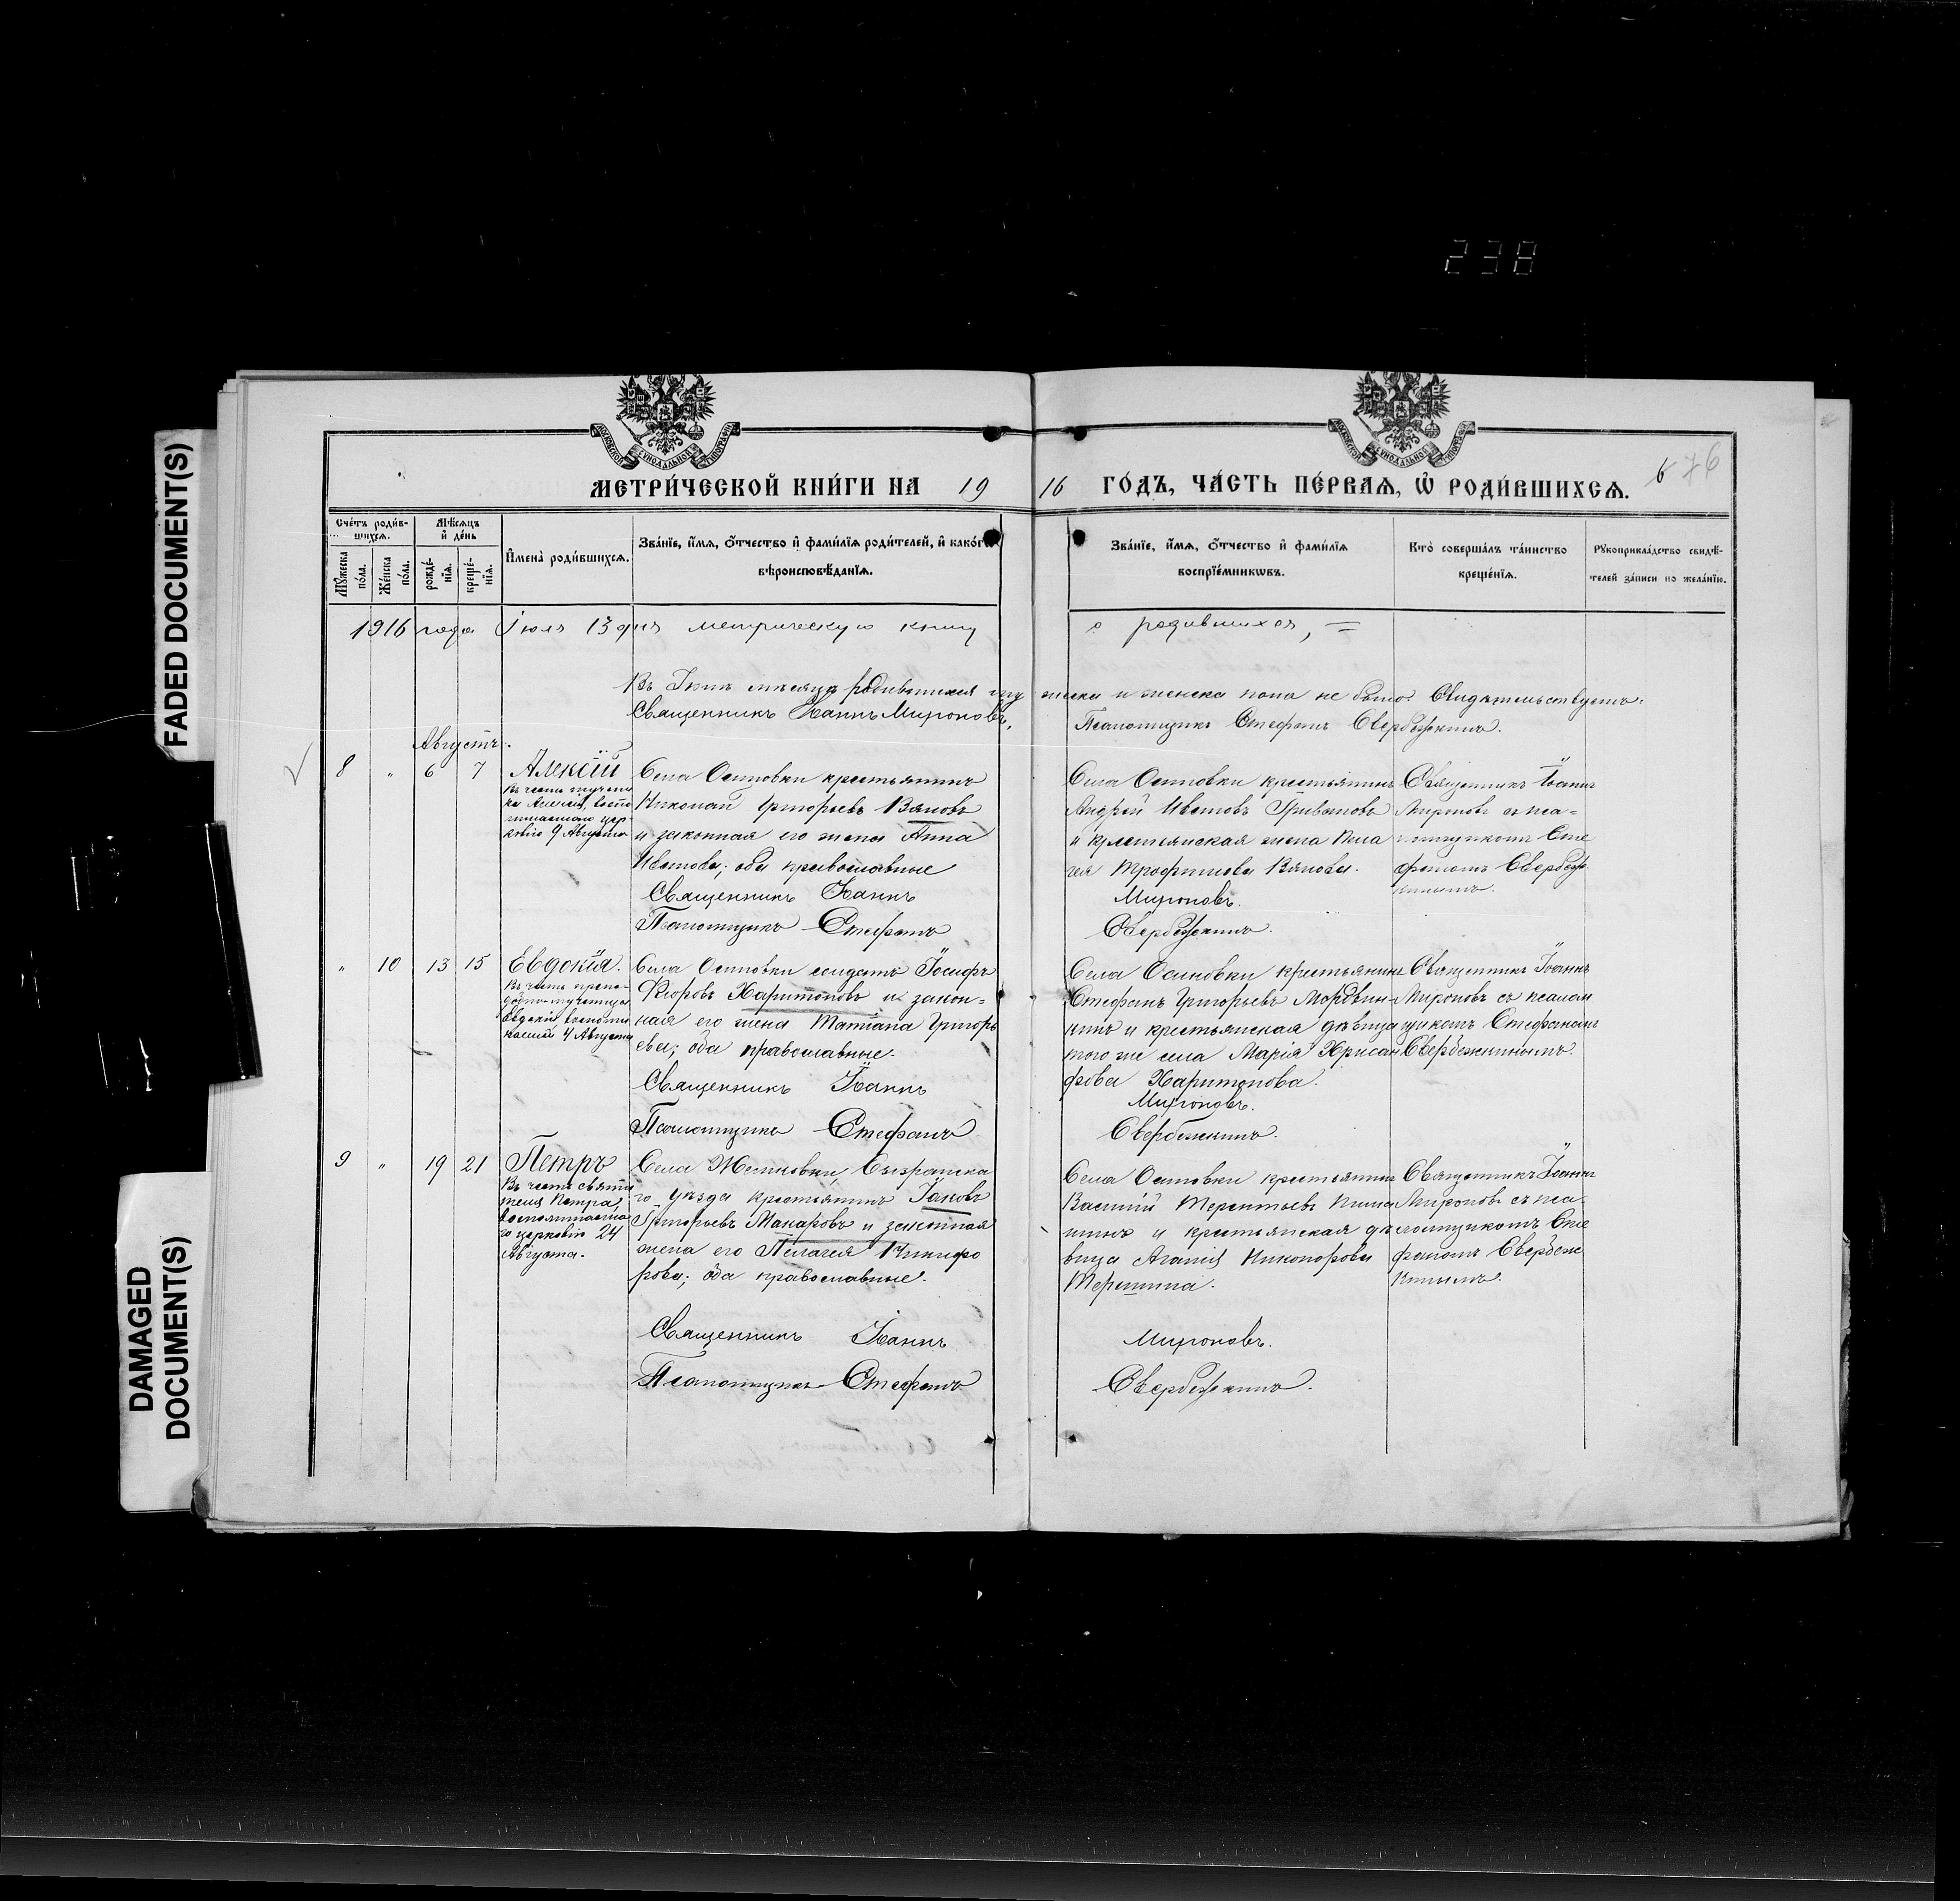 238
FADED DOCUMENT(S)
DAMAGED
DOCUMENT(S)
МЕТРИ́ЧЕСКОЙ КНИ́ГИ НА 1916 ГО́ДЪ, ЧА́СТЬ ПЕ́РВАѦ, Ѡ҆ РОДИ́ВШИХСѦ.
6 76
Сче́тъ роди́в-
шихсѧ.
Мѣ́сѧцъ
и҆ де́нь
Мꙋ́жеска
по́ла.
Же́нска
по́ла.
рожде́-
нїѧ.
креще́-
нїѧ.
И҆мена̀ роди́вшихсѧ.
Зва́нїе, и҆́мѧ, ѻ҆́тчество и҆ фами́лїѧ роди́телей, и҆ како́гѡ
вѣроисповѣ́данїѧ.
Зва́нїе, и҆́мѧ, ѻ҆́тчество и҆ фами́лїѧ
воспрїе́мникѡвъ.
Кто̀ соверша́лъ та́инство
креще́нїѧ.
Рꙋкоприкла́дство свидѣ́-
телей за́писи по жела́нїю.
1916 года Іюля 13 дня метрическую книгу о родившихся,
Въ мѣсяцѣ родившихся мужеска и женска пола не было. Свидѣтельствуетъ:
Священникъ Іоаннъ Мироновъ,
Псаломщикъ Стефанъ Свербежкинъ.
Августъ.
8 " 6 7
Алексій
Въ честь мучени
ка Алексія, воспо
минаемаго цер-
ковію 9 Августа
Села Осиновки крестьянинъ
Николай Григорьевъ Вяновъ
и законная его жена Анна
Иванова; оба православные
Священникъ Іоаннъ
Псаломщикъ Стефанъ
Села Осиновки крестьянинъ
Андрей Ивановъ
и крестьянская жена Пела
гея Трофимова Вянова.
Мироновъ.
Свербежкинъ.
Священникъ Іоаннъ
Мироновъ съ пса-
ломщикомъ Сте
фаномъ Свербеж
кинымъ.
" 10 13 15
Евдокія.
Въ честь препо-
добно-мученицы
Евдокіи воспоми
4 Августа
Села Осиновки солдатъ Іосифъ
Харитоновъ и закон-
ная его жена Татіана Григорь
ева; оба православные.
Священникъ Іоаннъ
Псаломщикъ Стефанъ
Села Осиновки крестьянинъ
Стефанъ Григорьевъ Мордвин-
кинъ и крестьянская дѣвица
того же села Марія Хрисан
фова Харитонова.
Мироновъ.
Свербежкинъ.
Священникъ Іоаннъ
Мироновъ съ псалом
щикомъ Стефаномъ
Свербежкинымъ.
9 " 19 21
Петръ
Въ честь святи
теля Петра,
воспоминаема
го церковію 24
Августа.
Села Сызранска
го уѣзда крестьянинъ Іаковъ
Григорьевъ Макаровъ и законная
жена его Пелагея Никифо
рова; оба православные.
Священникъ Іоаннъ
Псаломщикъ Стефанъ
Села Осиновки крестьянинъ
Василій Терентьевъ
и крестьянская дѣ
вица Агафія Никонорова
Мироновъ.
Свербежкинъ.
Священникъ Іоаннъ
Мироновъ съ пса-
ломщикомъ Сте
фаномъ Свербеж
кинымъ.